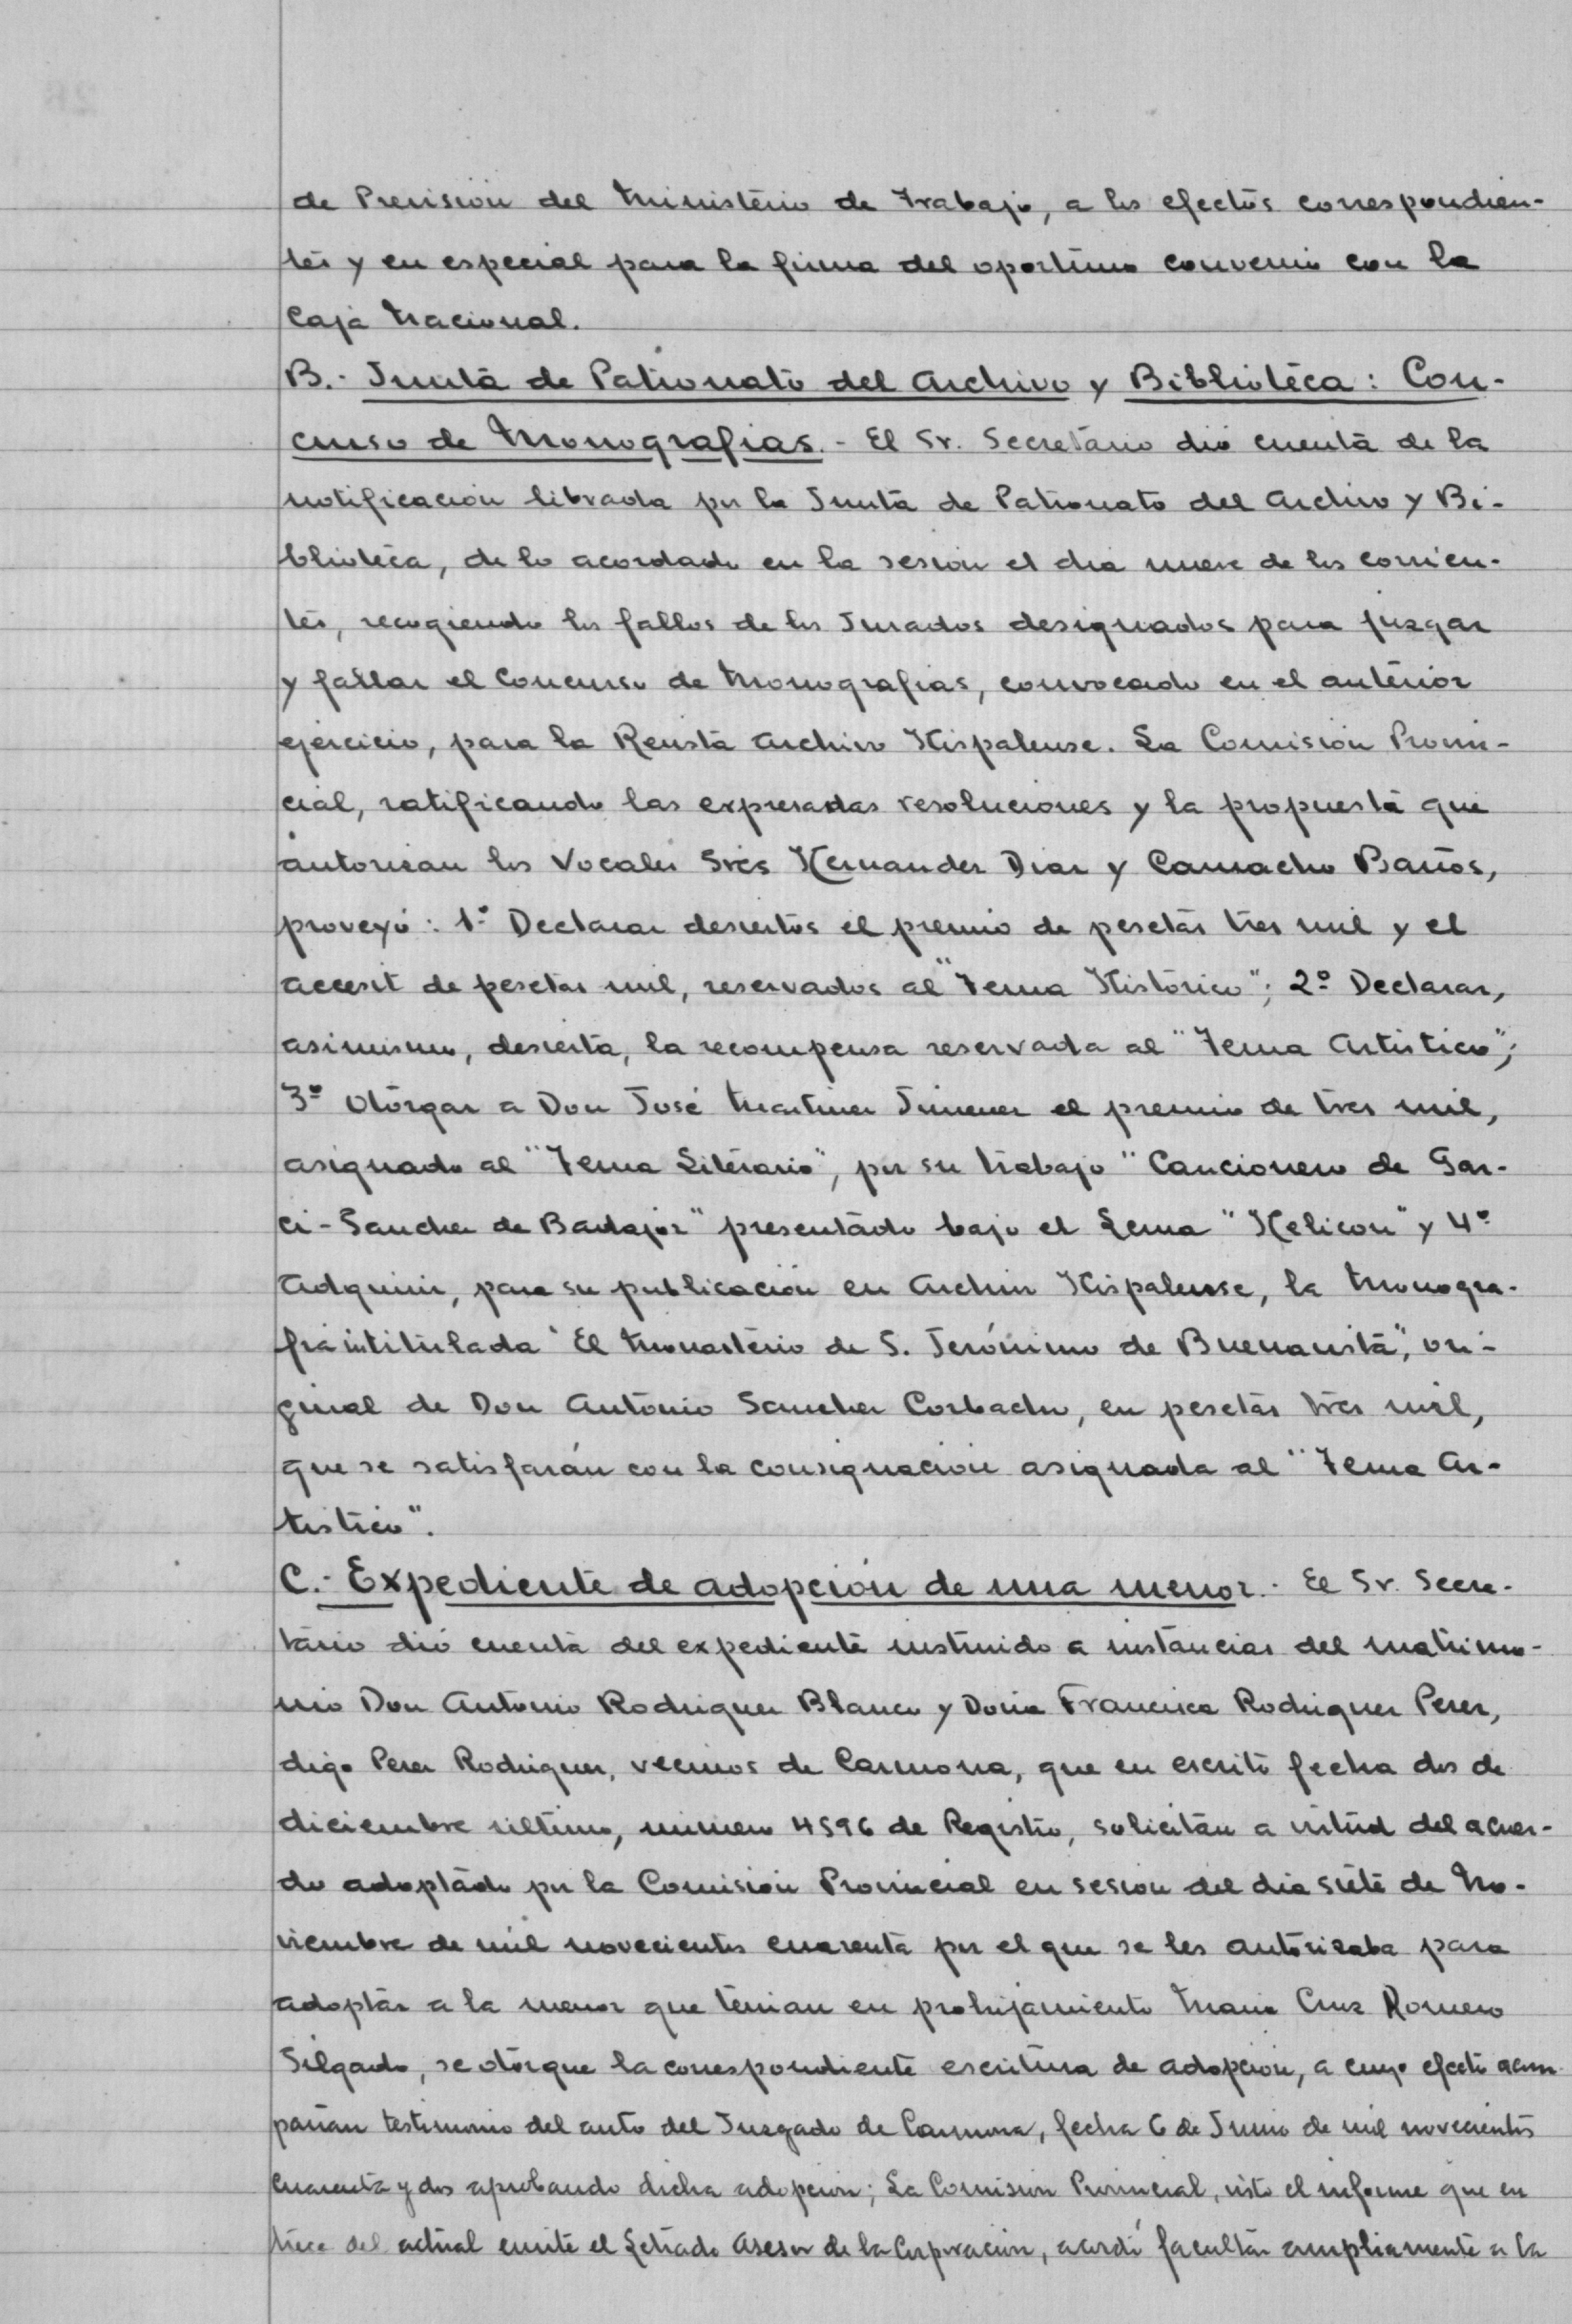 de Prevision del Ministerio de Trabajo, a los efectos correspondien-
tes y en especial para la firma del oportuno convenio con la
Caja Nacional.
B.- Junta de Patronato del Archivo y Biblioteca: Con-
curso de Monografias.- El Sr. Secretario dió cuenta de la
notificación librada por la Junta de Patronato del Archivo y Bi-
blioteca, de lo acordado en la sesión el dia nueve de los corrien-
tes, recogiendo los fallos de los Jurados designados para juzgar
y fallar el Concurso de Monografias, convocado en el anterior
ejercicio, para la Revista Archivo Hispalense. La Comisión Provin-
cial, ratificando las expresadas resoluciones y la propuesta que
autorizan los Vocales Sres Hernandez Diaz y Camacho Baños,
proveyó: 1º Declarar desiertos el premio de pesetas tres mil y el
accesit de pesetas mil, reservados al "Tema Histórico"; 2º Declarar,
asimismo, desierta, la recompensa reservada al "Tema Artistico";
3º Otorgar a Don José Martinez Jimenez el premio de tres mil,
asignado al "Tema Literario", por su trabajo "Cancionero de Gar-
ci-Sanchez de Badajoz" presentado bajo el Lema "Helicon" y 4º
Adquirir, para su publicación en Archivo Hispalense, la Monogra-
fia intitulada "El Monasterio de S. Jerónimo de Buenavista", ori-
ginal de Don Antonio Sanchez Corbacho, en pesetas tres mil,
que se satisfarán con la consignación asignada al "Tema Ar-
tistico".
C.- Expediente de adopción de una menor.- El Sr. Secre-
tario dió cuenta del expediente instruido a instancias del matrimo-
nio Don Antonio Rodriguez Blanco y Doña Francisca Rodriguez Perez,
digo Perez Rodriguez, vecinos de Carmona, que en escrito fecha dos de
diciembre último, número 4596 de Registro, solicitan a virtud del acuer-
do adoptado por la Comisión Provincial en sesion del dia siete de No-
viembre de mil novecientos cuarenta por el que se les autorizaba para
adoptar a la menor que tenian en prohijamiento Maria Cruz Romero
Silgado, se otorgue la correspondiente escritura de adopción, a cuyo efecto acom-
pañan testimonio del auto del Juzgado de Carmona, fecha 6 de Junio de mil novecientos
cuarenta y dos aprobando dicha adopcion; La Comision Provincial, visto el informe que en
trece del actual emite el Letrado Asesor de la Corporacion, acordó facultar ampliamente a la